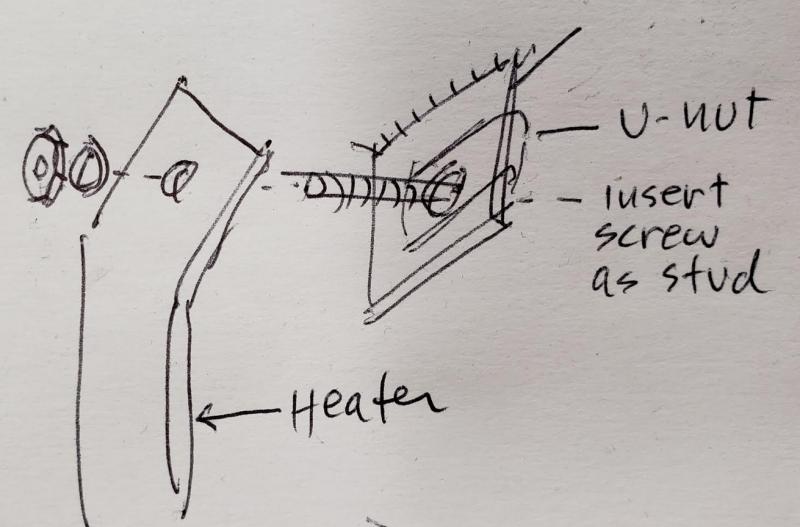 U-NUT
insert
screw
as stud
Heater